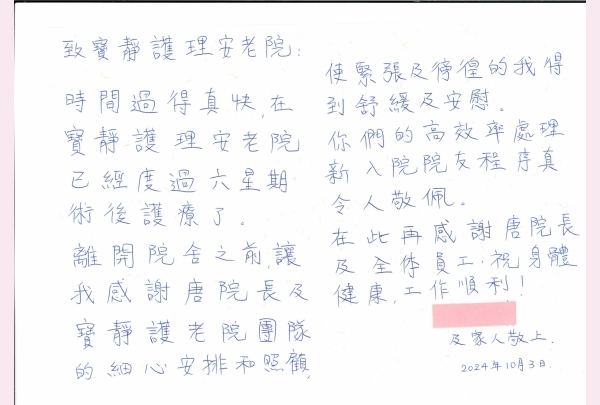 致寶靜護理安老院：
時間過得真快,在
寶靜護理安老院
已經度過六星期
術後護療了。
離開院舍之前,讓
我感謝唐院長及
寶靜護老院團隊
的細心安排和照顧,
使緊張及徬徨的我得
到舒緩及安慰。
你們的高效率處理
新入院院友程序真
令人敬佩。
在此再感謝唐院長
及全体員工,祝身體
健康,工作順利!
及家人敬上.
2024年10月3日.